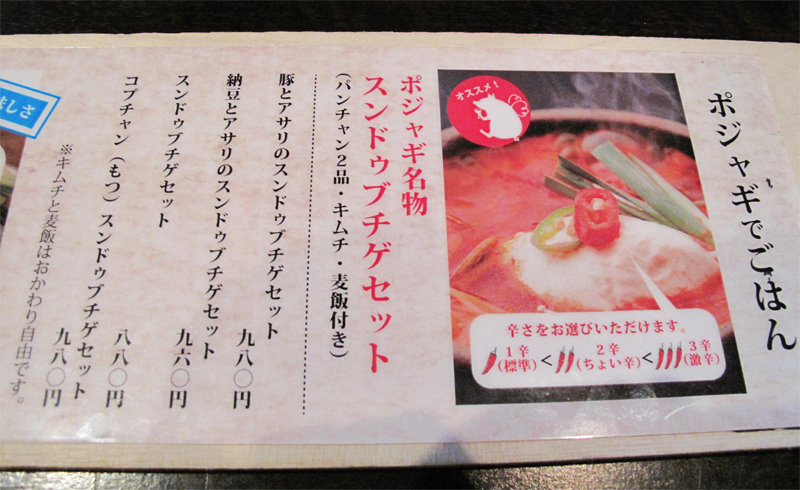 ポジャギでごはん
オススメ!
辛さをお選びいただけます。
1辛
(標準)
<
2辛
(ちょい辛)
<
3辛
(激辛)
ポジャギ名物
スンドゥブチゲセット
(パンチャン2品・キムチ・麦飯付き)
豚とアサリのスンドゥブチゲセット
九八〇円
納豆とアサリのスンドゥブチゲセット
九六〇円
スンドゥブチゲセット
八八〇円
コプチャン(もつ)スンドゥブチゲセット
九八〇円
※キムチと麦飯はおかわり自由です。
しさ